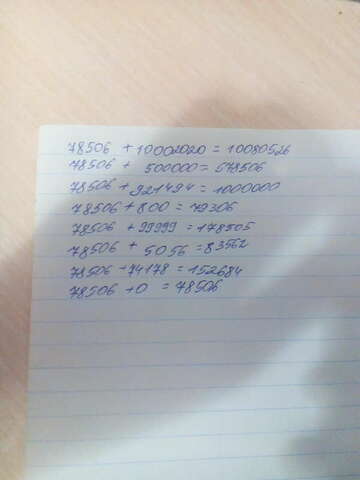 78506 + 10002020 = 10080526
78506 + 500000 = 578506
78506 + 921494 = 1000000
78506 + 800 = 79306
78506 + 99999 = 178505
78506 + 5056 = 83562
78506 + 74178 = 152684
78506 + 0 = 78506